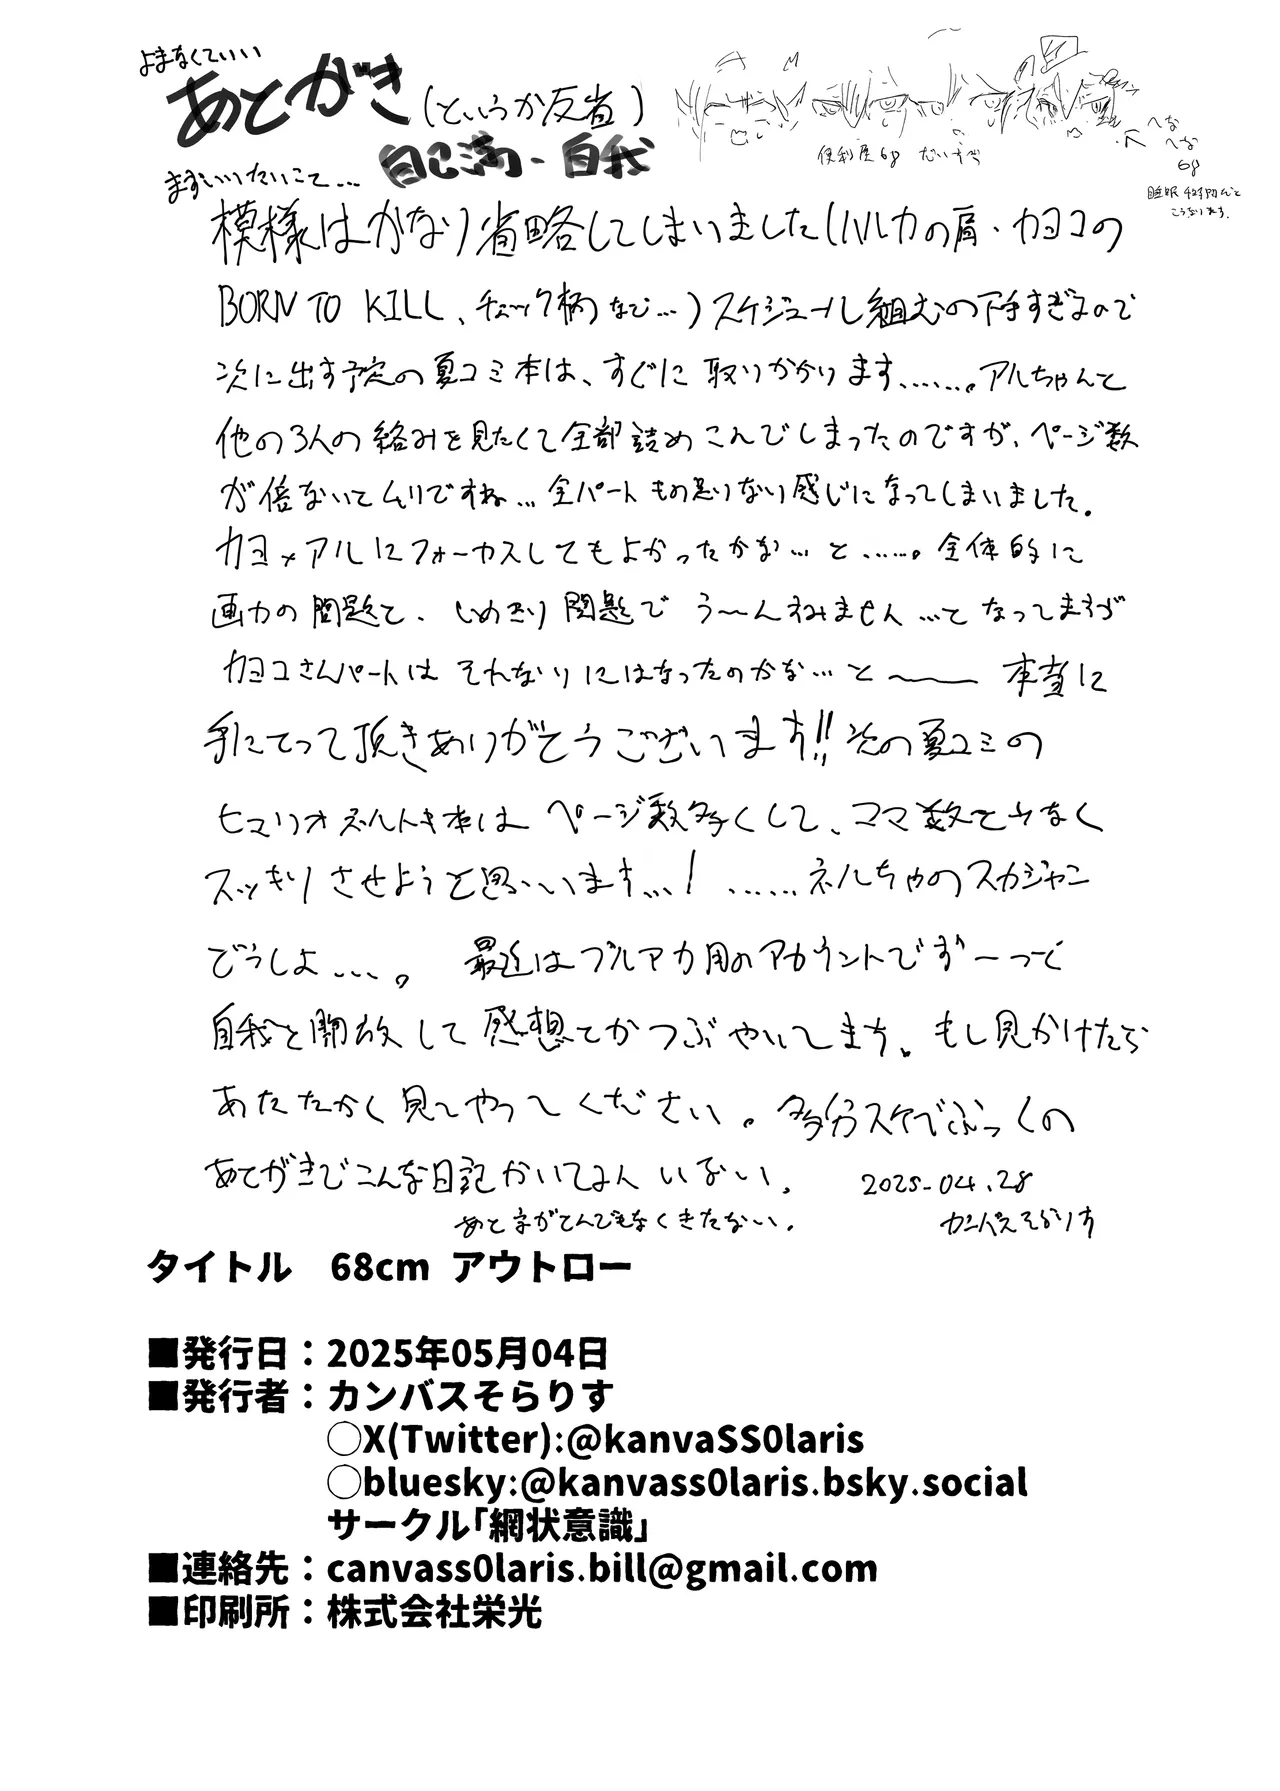 よまなくていい
あとがき(というか反省)
自己満・自我
便利屋68 だいすき
へな
へな
68
睡眠4時間だと
こうなります。
まずいいたいこと…
模様はかなり省略してしまいました(ハルカの肩・カヨコの
BORN TO KILL、チェック柄など…)スケジュール組むの下手すぎるので
次に出す予定の夏コミ本は、すぐに取りかかります……。アルちゃんと
他の3人の絡みを見たくて全部詰めこんでしまったのですが、ページ数
が倍ないとムリですね…全パートもの足りない感じになってしまいました。
カヨ×アルにフォーカスしてもよかったかな…と……。全体的に
画力の問題と、しめきり問題でう〜んすみません…となってますが
カヨコさんパートはそれなりにはなったのかな…と〜〜 本当に
手にとって頂きありがとうございます!!次の夏コミの
ヒマリオネルトキ本はページ数多くして、コマ数を少なく
スッキリさせようと思います…!……ネルちゃのスカジャン
どうしよ…。 最近はブルアカ用のアカウントでずーっと
自我を開放して感想とかつぶやいてます。もし見かけたら
あたたかく見てやってください。多分スケベぶっくの
あとがきでこんな日記かいてる人いない。 2025.04.28
あと字がとんでもなくきたない。 カンバスそらりす
タイトル 68cm アウトロー
■発行日:2025年05月04日
■発行者:カンバスそらりす
○X(Twitter):@kanvaSS0laris
○bluesky:@kanvass0laris.bsky.social
サークル「網状意識」
■連絡先:canvass0laris.bill@gmail.com
■印刷所:株式会社栄光